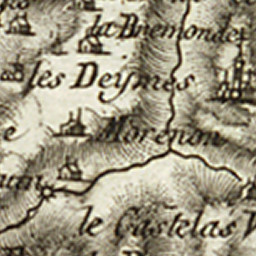 la Bremonde
les Deymes
Morenon
le Castelas